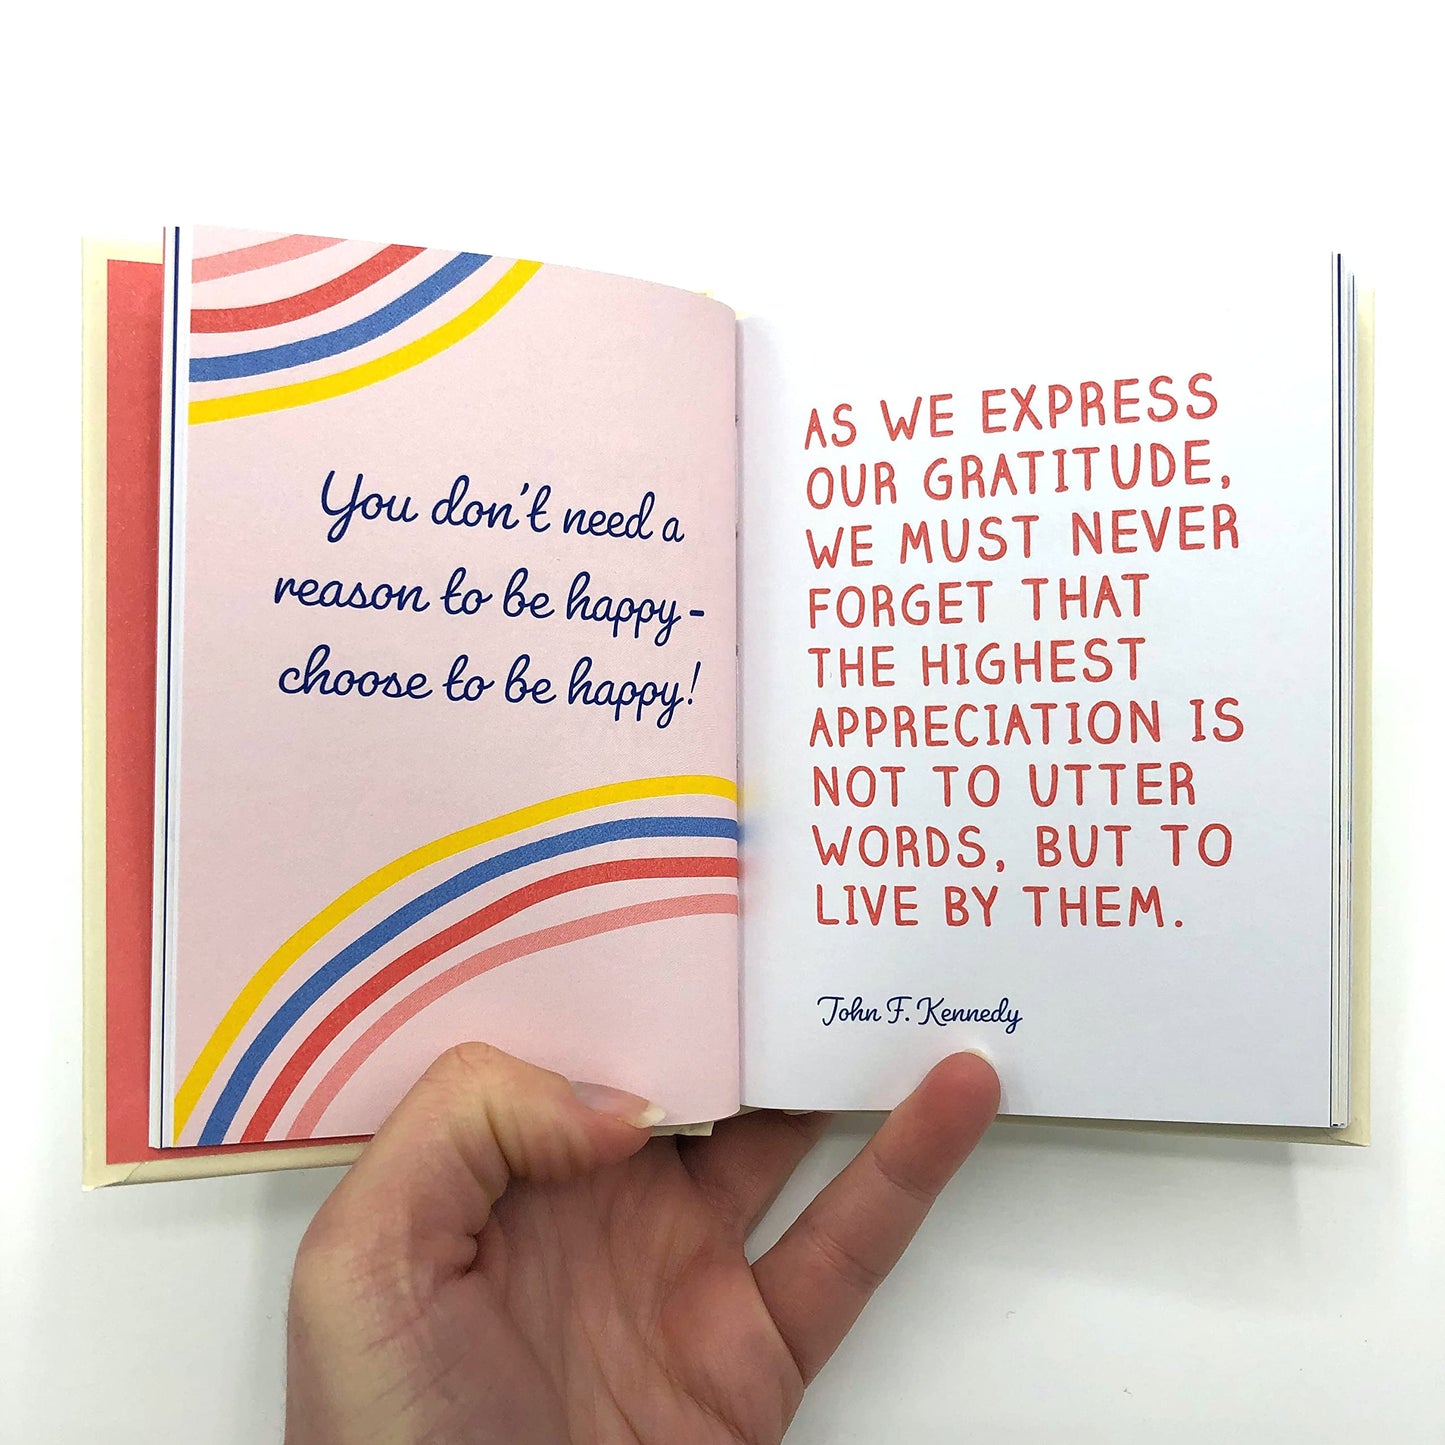 You don't need a
reason to be happy -
choose to be happy!
AS WE EXPRESS
OUR GRATITUDE,
WE MUST NEVER
FORGET THAT
THE HIGHEST
APPRECIATION IS
NOT TO UTTER
WORDS, BUT TO
LIVE BY THEM.
John F. Kennedy